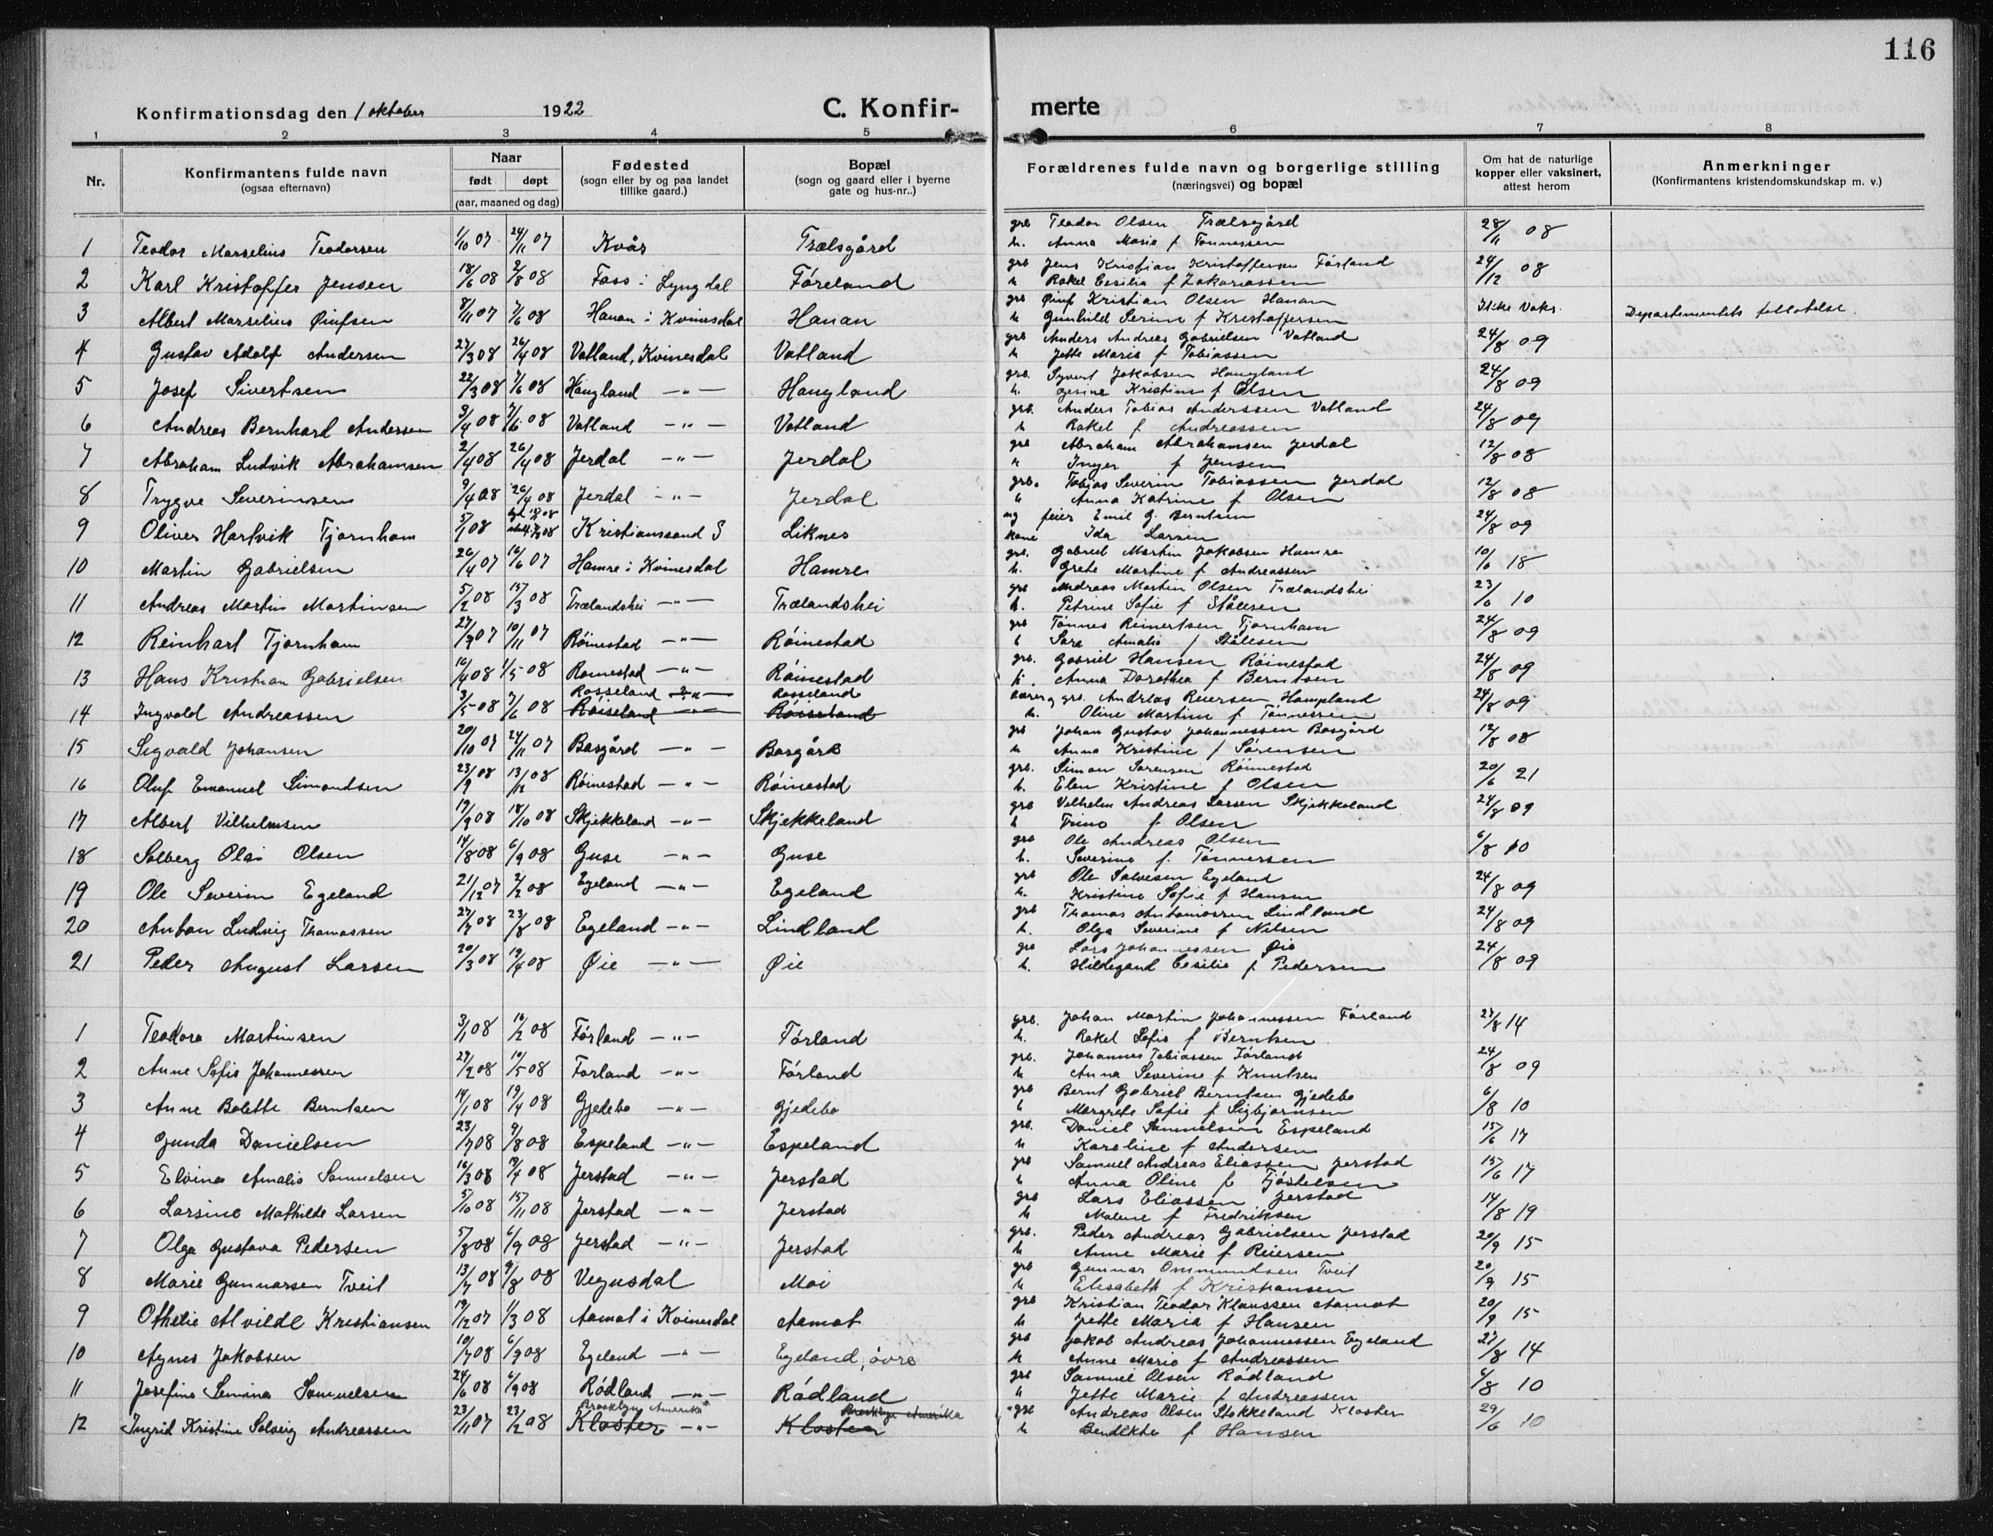 116
Konfirmationsdag den 1 oktober 1922 C. Konfir- merte
1 2 3 4 5 6 7 8
Nr. Konfirmantens fulde navn (ogsaa efternavn) Naar født døpt (aar, maaned og dag) Fødested (sogn eller by og paa landet tillike gaard.) Bopæl (sogn og gaard eller i byerne gate og hus-nr..) Forældrenes fulde navn og borgerlige stilling (næringsvei) og bopæl Om hat de naturlige kopper eller vaksinert, attest herom Anmerkninger (Konfirmantens kristendomskundskap m. v.)
1 Teodor Marselius Teodorsen 1/10 07 24/11 07 Kvås Trælsgård grb Teodor Olsen Trælsgård 28/11 08
h. Anna Marie f Tønnessen
2 Karl Kristoffer Jensen 18/6 08 2/8 08 Foss i Lyngdal Føreland grb Jens Kristian Kristoffersen Førland 24/12 08
h Rakel Cesilia f Zakariassen
3 Albert Marselius Øiufsen 8/11 07 7/6 08 Hanan i Kvinesdal Hanan grb Øiuf Kristian Olsen Hanan Ikke vaks. Departementets tillatelse.
h Gunhild Serine f Kristoffersen
4 Gustav Adolf Andersen 27/3 08 26/4 08 Vatland, Kvinesdal Vatland grb Anders Andreas Gabrielsen Vatland 24/8 09
h Jette Maria f Tobiassen
5 Josef Sivertsen 22/3 08 7/6 08 Haugland —"— Haugland grb. Syvert Jakobsen Haugland 24/8 09
h. Serine Kristine f Olsen
6 Andreas Bernhard Andersen 3/4 08 7/6 08 Vatland —"— Vatland grb. Anders Tobias Anderssen Vatland 24/8 09
h Rakel f Andreassen
7 Abraham Ludvik Abrahamsen 2/4 08 26/4 08 Jerdal —"— Jerdal grb Abraham Abrahamsen Jerdal 12/8 08
h Inger f Jensen
8 Trygve Severinsen 9/4 08 26/4 08 Jerdal —"— Jerdal grb. Tobias Severin Tobiassen Jerdal 12/8 08
h Anna Katrine f Olsen
9 Oliver Hartvik Tjørnhom Kristianssand S Liknes feier Emil G. Berntsen 24/8 09
kone Ida Larsen
10 Martin Gabrielsen 26/4 07 16/6 07 Hamre i Kvinesdal Hamre grb. Gabriel Martin Jakobsen Hamre 10/6 18
h. Grete Martine f Andreassen
11 Andreas Martin Martinsen 5/2 08 15/3 08 Trælandshei —"— Trælandshei grb Andreas Martin Olsen Trælandshei 23/6 10
h. Petrine Sofie f Stålesen
12 Reinhart Tjørnhom 27/9 07 10/11 07 Röinestad —"— Röinestad grb Tønnes Reinertsen Tjørnhom 24/8 09
h Sara Amalie f Stålesen
13 Hans Kristian Gabrielsen 16/4 08 1/5 08 Roinestad —"— Röinestad grb. Gabriel Hansen Röinestad 24/8 09
h. Anna Dorothea f Berntsen
14 Ingvald Andreassen 3/5 08 7/6 08 Rosseland —"— Röiseland —"— Rosseland Röiseland grb. Andreas Reiersen Haugland 24/8 09
h. Oline Martine f Tønnessen
15 Sigvald Johansen 20/10 07 24/11 07 Basgård —"— Basgård grb Johan Gustav Johannessen Basgård 12/8 08
h Anna Kristine f Sørensen
16 Oluf Emanuel Simondsen 23/9 08 13/12 08 Röinestad —"— Röinestad grb. Simon Sørensen Röinestad 20/6 21
h. Elen Kristine f Olsen
17 Albert Vilhelmsen 19/9 08 18/10 08 Skjekkeland —"— Skjekkeland grb Vilhelm Andreas Larsen Skjekkeland 24/8 09
h Trine f Olsen
18 Solberg Olai Olsen 14/8 08 6/9 08 Guse —"— Guse grb Ole Andreas Olsen 6/8 10
h. Severine f. Tønnessen
19 Ole Severin Egeland 21/12 07 2/2 08 Egeland —"— Egeland grb Ole Salvesen Egeland 24/8 09
h. Kristine Sofie f Hansen
20 Anton Ludvig Thomassen 27/7 08 23/8 08 Egeland —"— Lindland grb Thomas Antoniossen Lindland 24/8 09
h. Olga Severine f Nilsen
21 Peder August Larsen 20/3 08 19/4 08 Øie —"— Øie grb Lars Johannessen Øie 24/8 09
h. Hildegard Cesilie f Pedersen
1 Teodora Martinsen 3/1 08 16/2 08 Førland —"— Førland grb. Johan Martin Johannessen Førland 27/8 14
h. Rakel Sofie f Berntsen
2 Anne Sofie Johannessen 29/2 08 10/5 08 Førland —"— Førland grb. Johannes Tobiassen Førland 24/8 09
h Anna Severine f Knutsen
3 Anne Bolette Berntsen 14/1 08 19/4 08 Gjedebo —"— Gjedebo grb Bernt Gabriel Berntsen Gjedebo 6/8 10
h Margrete Sofie f Sigbjørnsen
4 Gunda Danielsen 23/7 08 9/8 08 Espeland —"— Espeland grb. Daniel Samuelsen Espeland 15/6 17
h Karoline f Andersen
5 Elvina Amalie Samuelsen 16/3 08 19/4 08 Jerstad —"— Jerstad grb Samuel Andreas Eliassen Jerstad 15/6 17
h Anna Oline f Tjøstelsen
6 Larsine Mathilde Larsen 5/10 08 15/11 08 Jerstad —"— Jerstad grb Lars Eliassen Jerstad 14/8 19
h Malene f Fredriksen
7 Olga Gustava Pedersen 5/8 08 6/9 08 Jerstad —"— Jerstad grb. Peder Andreas Gabrielsen Jerstad 20/9 15
h Anne Marie f Reiersen
8 Marie Gunnarsen Tveit 13/7 08 9/8 08 Vegusdal Moi grb Gunnar Ommundsen Tveit 20/9 15
h Elisabeth f Kristiansen
9 Othelie Alvilde Kristiansen 19/12 07 1/3 08 Aamot i Kvinesdal Aamot grb Kristian Teodor Klaussen Aamot 20/9 15
h Jette Maria f Hansen
10 Agnes Jakobsen 10/7 08 6/9 08 Egeland —"— Egeland, øvre grb Jakob Andreas Johannessen Egeland 27/8 14
h Anne Marie f Andreassen
11 Josefine Semine Samuelsen 24/6 08 6/9 08 Rødland —"— Rødland grb Samuel Olsen Rødland 6/8 10
h Jette Marie f Andreassen
12 Ingrid Kristine Solveig Andreassen 23/11 07 23/2 08 Brooklyn Amerika Kloster —"— Brooklyn Amerika Kloster grb Andreas Olsen Stokkeland Kloster 29/6 10
h Bendikte f Hansen